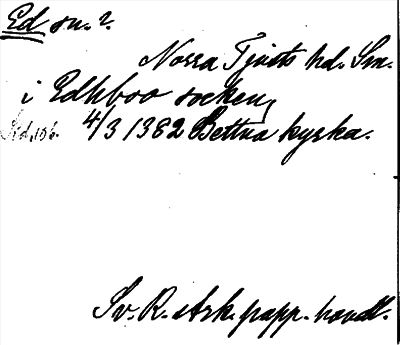 Ed sn. ?
Norra Tjusts hd. Sm.
i Edhboo socken,
Sid. 106. 4/3 1382 Bettna kyrka.
Sv. R. Ark. papp. handl.